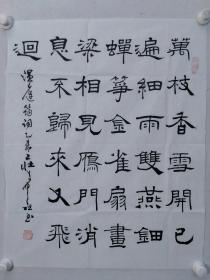 萬枝香雪開已
遍細雨雙燕鈿
蟬箏金雀扇畫
梁相見鴈門消
息不歸來又飛
迴
溫庭筠詞 書